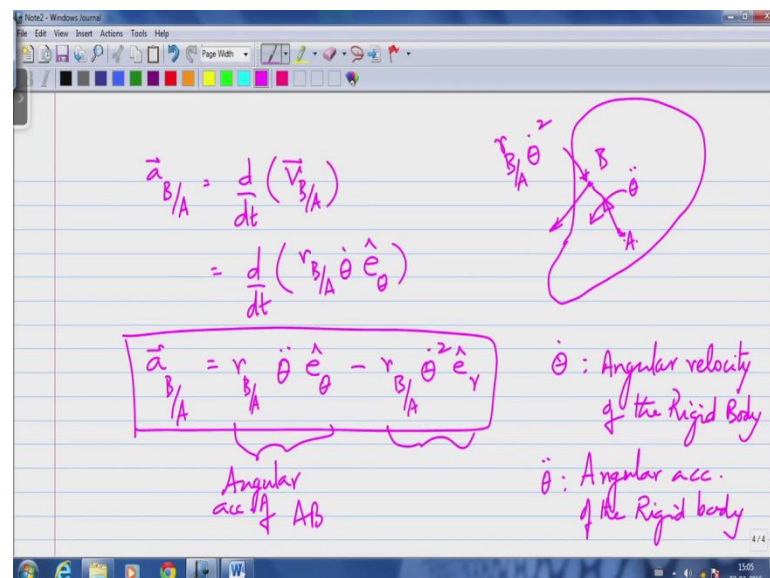 Note2 - Windows Journal
File Edit View Insert Actions Tools Help
Page Width
a⃗ B/A = d/dt (V⃗ B/A)
= d/dt (r B/A θ̇ ê θ)
a⃗ B/A = r B/A θ̈ ê θ - r B/A θ̇² ê r
Angular
acc of AB
r B/A θ̇²
B
θ̈
A
θ̇ : Angular velocity
of the Rigid Body
θ̈ : Angular acc.
of the Rigid body
4/4
15:05